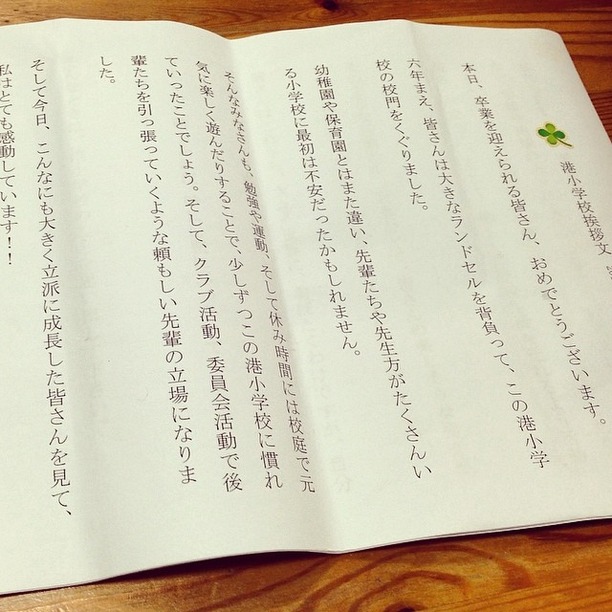 港小学校挨拶文
本日、卒業を迎えられる皆さん、おめでとうございます。
六年まえ、皆さんは大きなランドセルを背負って、この港小学
校の校門をくぐりました。
幼稚園や保育園とはまた違い、先輩たちや先生方がたくさんい
る小学校に最初は不安だったかもしれません。
そんなみなさんも、勉強や運動、そして休み時間には校庭で元
気に楽しく遊んだりすることで、少しずつこの港小学校に慣れ
ていったことでしょう。そして、クラブ活動、委員会活動で後
輩たちを引っ張っていくような頼もしい先輩の立場になりま
した。
そして今日、こんなにも大きく立派に成長した皆さんを見て、
私はとても感動しています！！